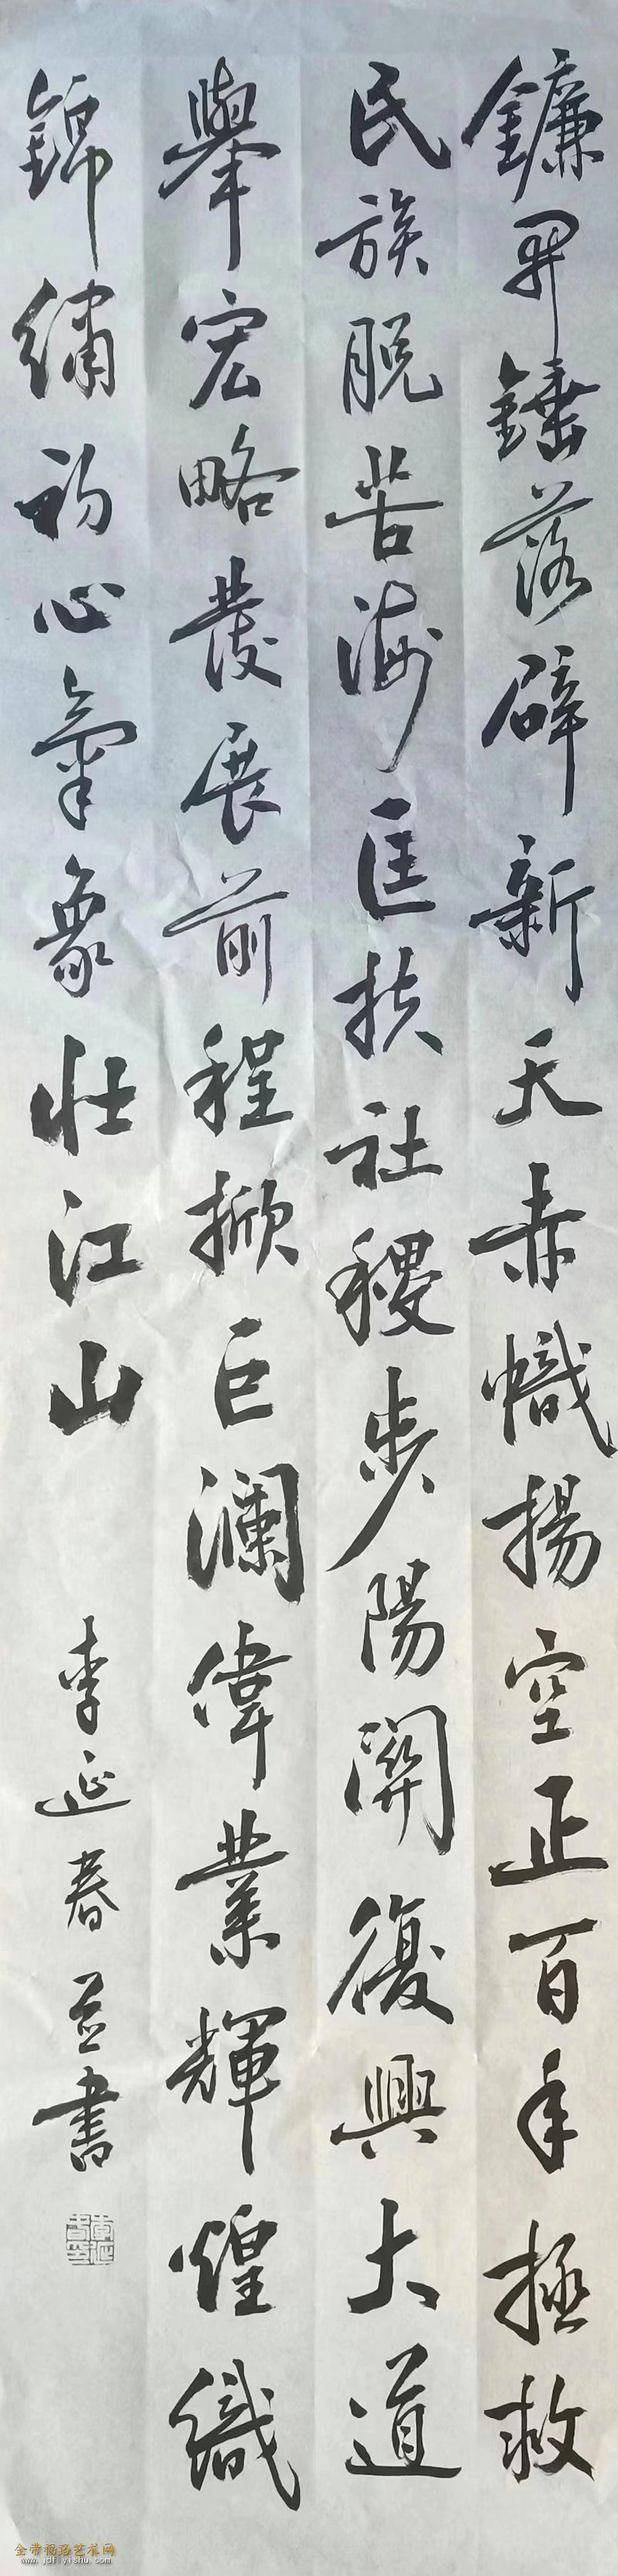 鐮昇錘落辟新天赤幟揚空正百年拯救
民族脱苦海匡扶社稷步陽關復興大道
舉宏略發展前程掀巨瀾偉業輝煌織
錦繡初心氣象壯江山
李延春並書
金带福路艺术网
www.jdflyishu.com